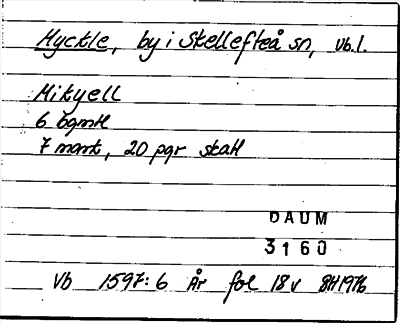 Myckle, by i Skellefteå sn, vb.l.
Mikyell
6 bgmtl
7 mark, 20 pgr skatt
DAUM
3160
Vb 1597:6 År fol 18v BH1976